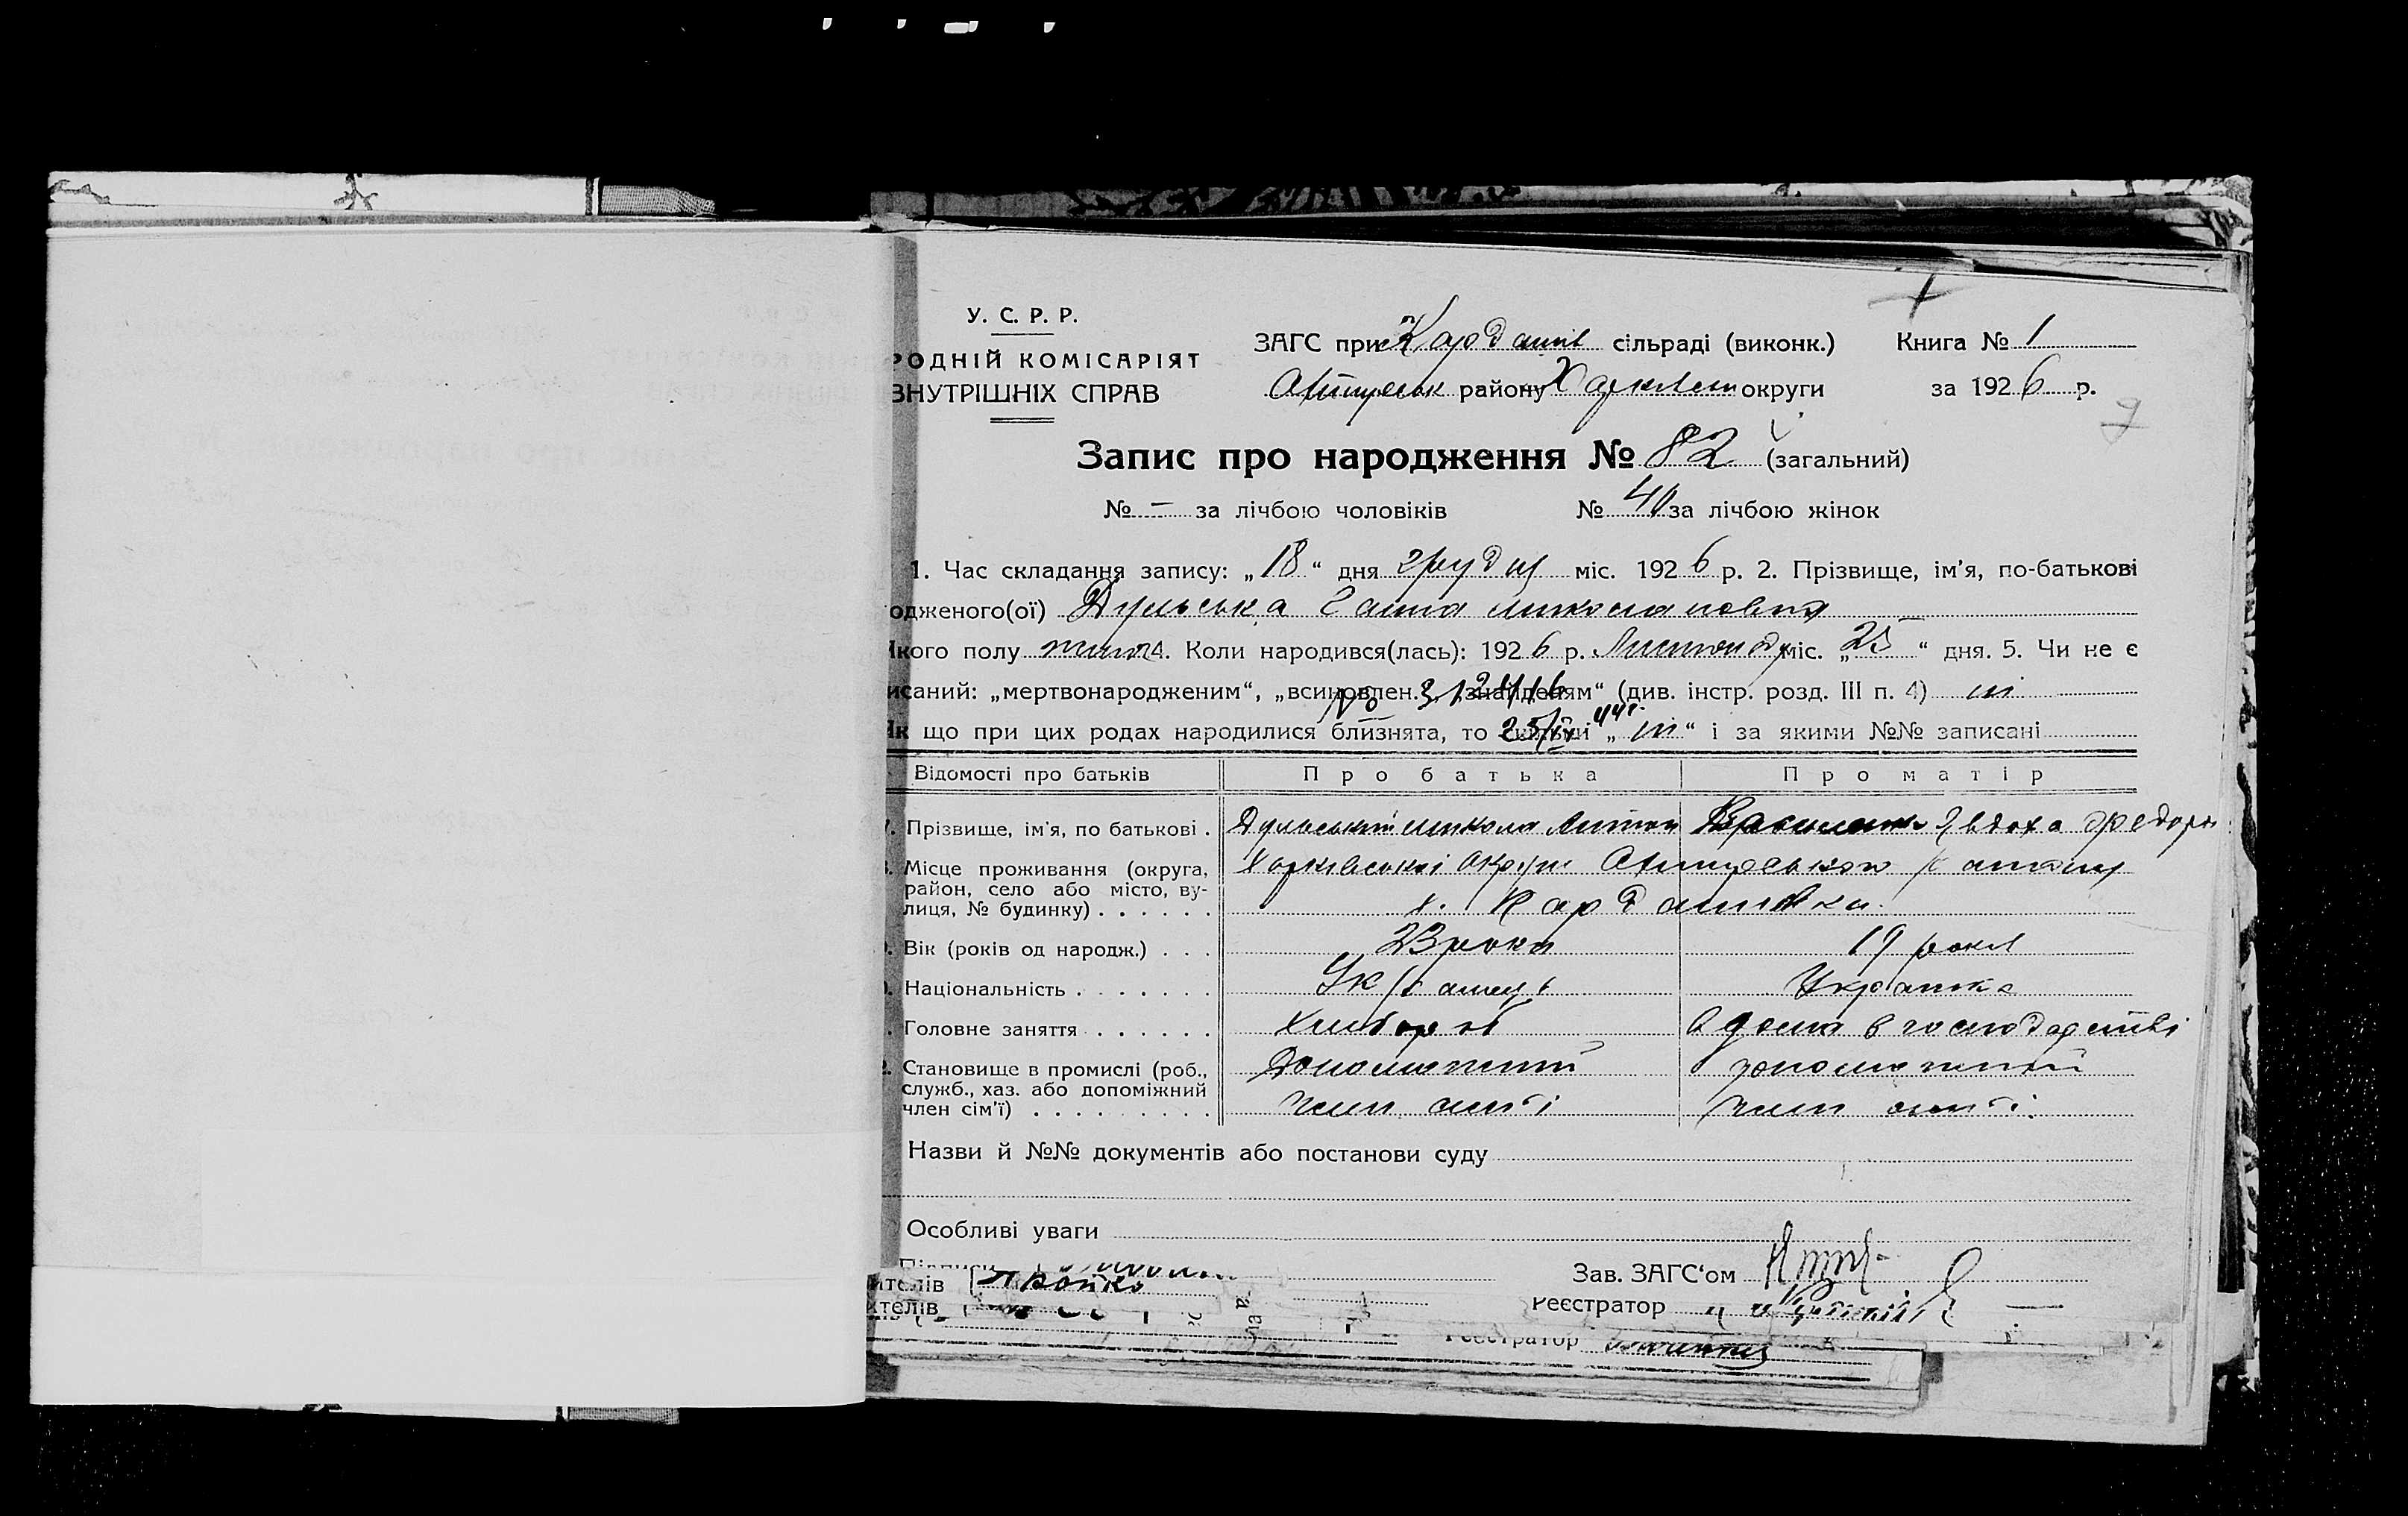 У. С. Р. Р.
РОДНІЙ КОМІСАРІЯТ
ВНУТРІШНІХ СПРАВ
ЗАГС при Кардашів сільраді (виконк.) Книга № 1
Охтирськ району Харківськ округи за 1926 р.
Запис про народження № 82 (загальний)
№ — за лічбою чоловіків № 40 за лічбою жінок
1. Час складання запису: „18“ дня грудня міс. 1926 р. 2. Прізвище, ім'я, по-батькові
одженого(ої) Дульська Ганна Миколаповна
якого полу жіноч 4. Коли народився(лась): 1926 р. Листопаду міс. „25“ дня. 5. Чи не є
исаний: „мертвонародженим“, „всиновлен.“, „знайденям“ (див. інстр. розд. III п. 4) ні
№ 312416
Як що при цих родах народилися близнята, то скільки „ні“ і за якими №№ записані
25/IV 44 г.
Відомості про батьків Про батька Про матір
7. Прізвище, ім'я, по батькові . Дульський Микола Антон Явдоха Федоров
Місце проживання (округа, район, село або місто, вулиця, № будинку) . . . . . . Харківської округи Охтирського району
х. Кардашівка.
Вік (років од народж.) . . . 23 роки 19 років
Національність . . . . . . . Українець Українка
Головне заняття . . . . . . Хлібороб Удома в господарстві
Становище в промислі (роб., Допоміжний допоміжний
служб., хаз. або допоміжний
член сім'ї) . . . . . . . . . член сім'ї член сім'ї.
Назви й №№ документів або постанови суду
Особливі уваги
Підписи
Зав. ЗАГС'ом
ителів
Реєстратор
ителів
Реєстратор